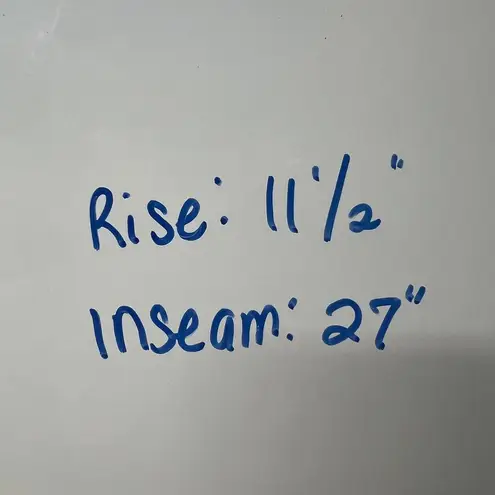 Rise: 11 1/2"
Inseam: 27"